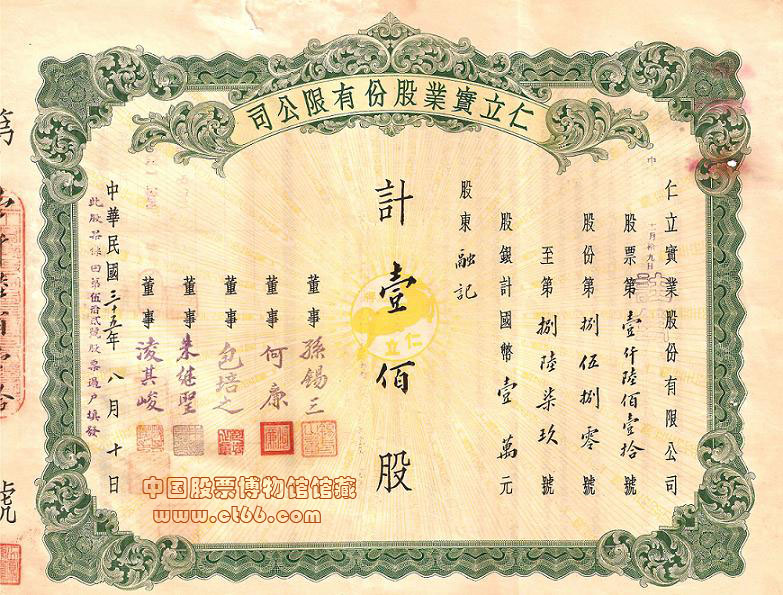 仁立實業股份有限公司
仁立實業股份有限公司
股票第壹仟陸佰壹拾號
股份第捌伍捌零號
至第捌陸柒玖號
股銀計國幣壹萬元
股東融記
計壹佰股
董事孫錫三
董事何廉
董事包培之
董事朱繼聖
董事凌其峻
中華民國三十五年八月十日
此股票係由第伍拾貳號股票過户填發
仁立
第
號
中国股票博物馆馆藏
www.ct66.com